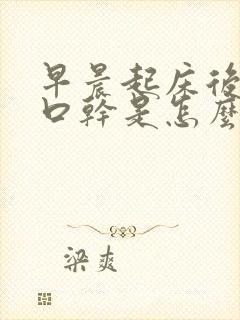 早晨起床後
口幹是怎麼
梁爽